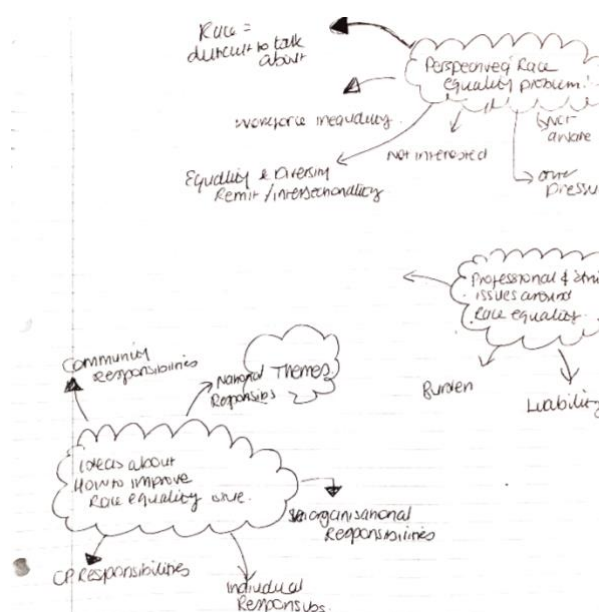 Race =
difficult to talk
about
Perspectives' Race
equality problem.
Workforce inequality.
Not
aware
Not interested
Equality & Diversity
Remit / intersectionality
other
Pressu
Professional &
issues around
Race equality.
Burden
Liability
Community
Responsibilities
National Themes
Responsibs
Ideas about
How to improve
Race equality
organisational
Responsibilities
CP Responsibilities
Individual
Responsibs.